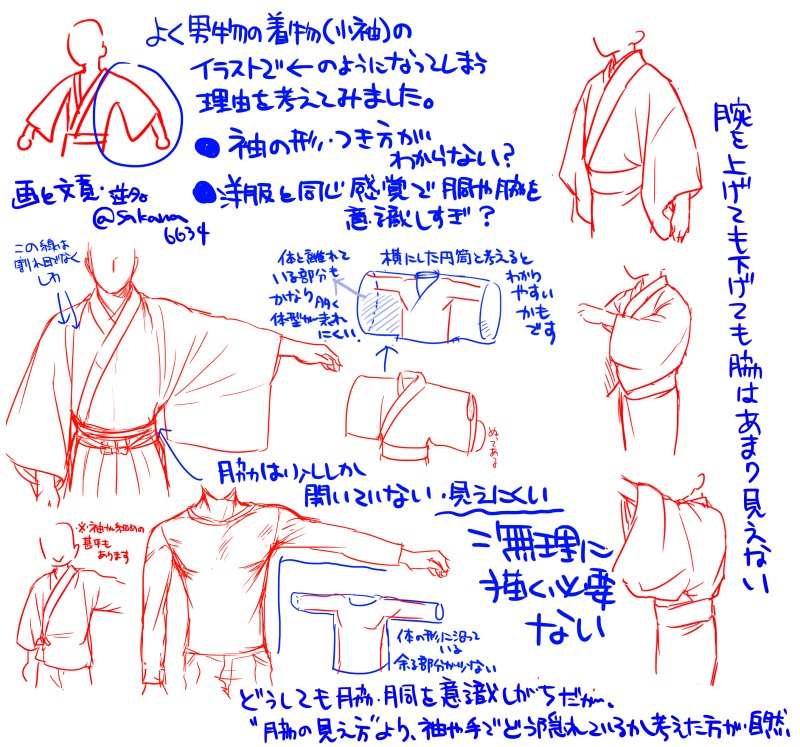 よく男物の着物(小袖)の
イラストで←のようになってしまう
理由を考えてみました。
●袖の形・つき方が
わからない?
●洋服と同じ感覚で胴や脇を
意識しすぎ?
画と文責・
@sakana
6634
この線は
割れ目でなく
しわ
体と離れて
いる部分も
かなり多く
体型が表れ
にくい。
横にした円筒と考えると
わかり
やすい
かも
です
ぬってある
脇は少ししか
開いていない・見えにくい
※袖が細めの
甚平も
あります
∴無理に
描く必要
ない
体の形に沿って
いる
余る部分が少ない
どうしても脇・胴を意識しがちだが、
"脇の見え方"より、袖や手でどう隠れているか考えた方が自然。
腕を上げても下げても脇はあまり見えない